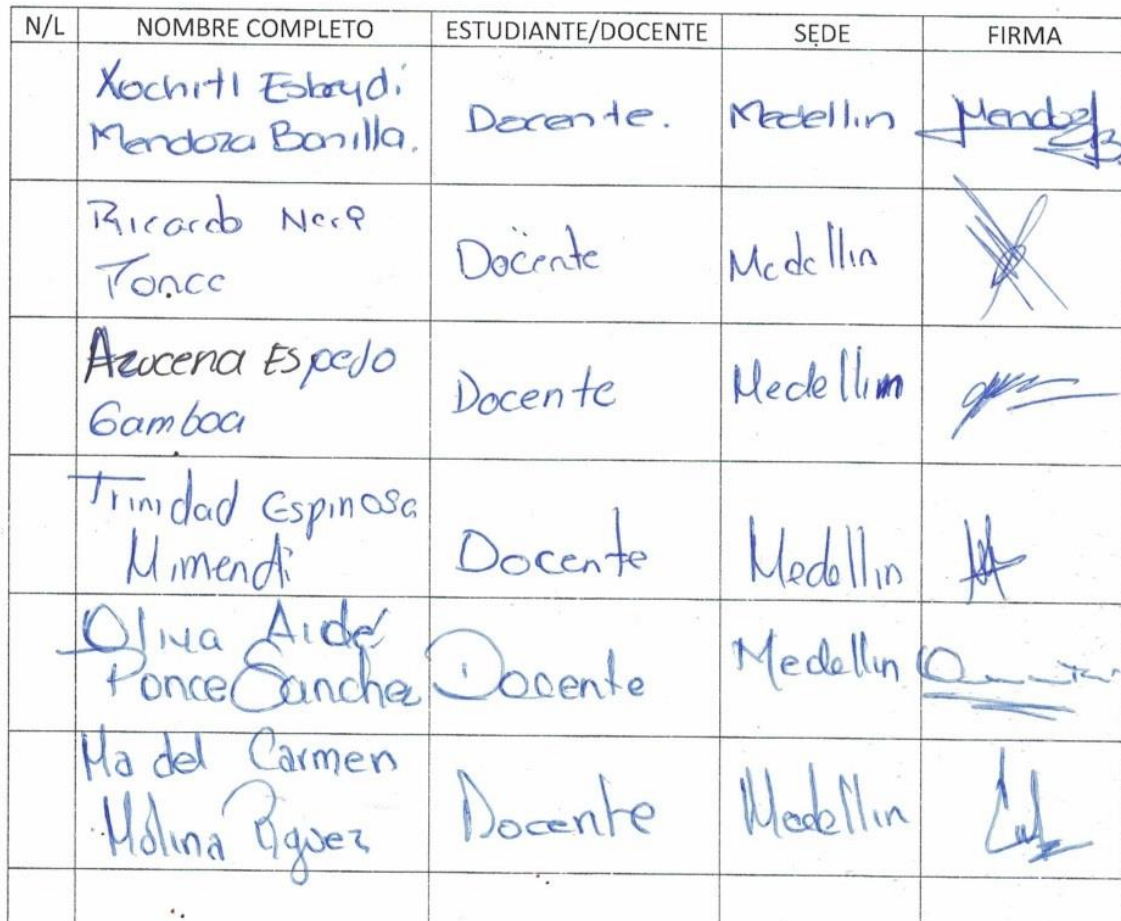 N/L NOMBRE COMPLETO ESTUDIANTE/DOCENTE SEDE FIRMA
Xochitl Esbeydi
Mendoza Bonilla. Docente. Medellin
Ricardo
Docente Medellin
Azucena Espejo
Gamboa Docente Medellin
Trinidad Espinosa
Mimendi Docente Medellin
Oliva Aidé
Ponce Sanchez Docente Medellin
Ma del Carmen
Molina Docente Medellin